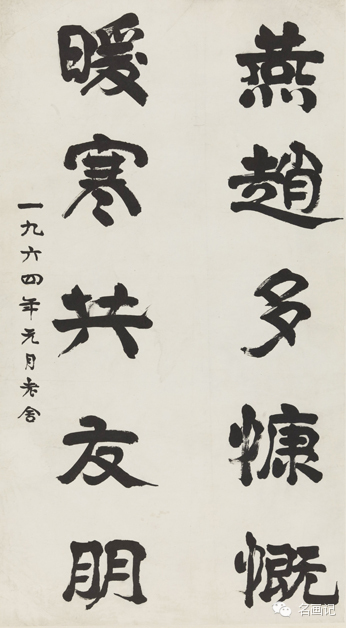 燕趙多慷慨
暖寒共友朋
一九六四年元月老舍
名画记